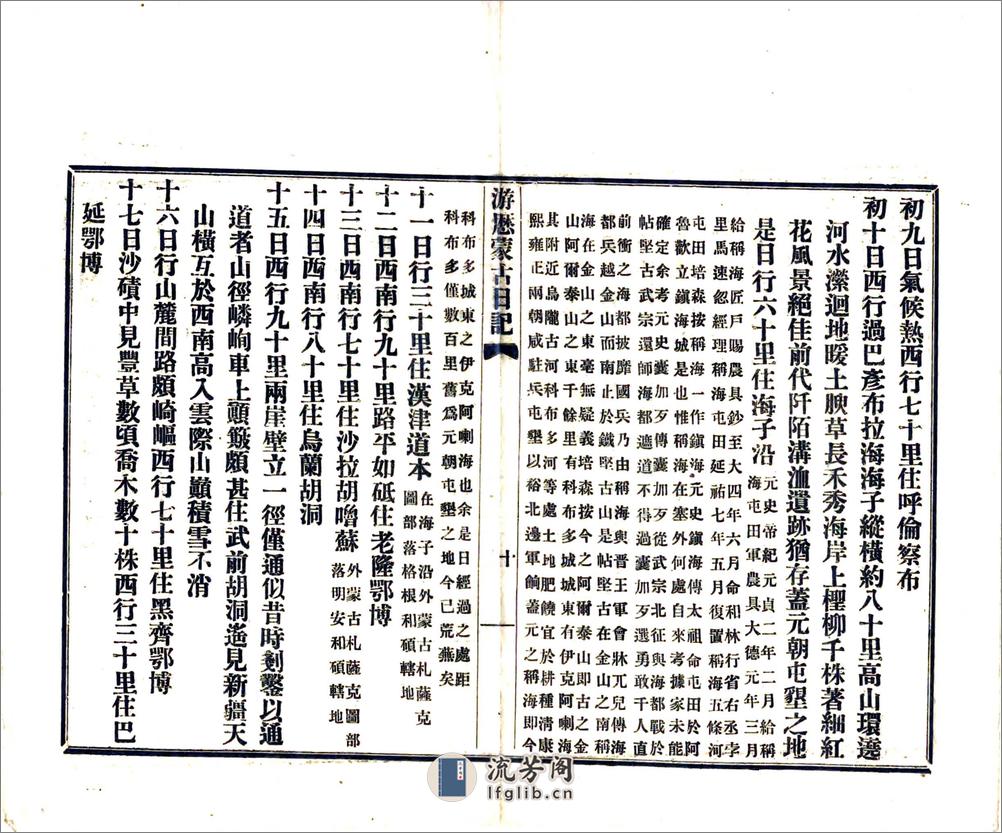 初九日氣候熱西行七十里住呼倫察布
初十日西行過巴彥布拉海海子縱橫約八十里高山環遶
河水瀠迴地暖土腴草長禾秀海岸上檉柳千株著細紅
花風景絕佳前代阡陌溝洫遺跡猶存蓋元朝屯墾之地
是日行六十里住海子沿
元史帝紀元貞二年二月給稱
海屯田軍農具大德元年三月
給稱海匠戶賜農具鈔至大四年六月命和林行省右丞孛
里馬速忽經理稱海屯田延祐七年五月復置稱海五條河
屯田培森按稱海一作鎮海元史鎮海傳太祖命屯田於阿
魯歡立鎮海城是也惟稱海在塞外何處自來考據家未能
確定余考元史囊加歹傳囊加歹從武宗北征與海都戰於
帖堅古武宗還師海都遮道不得過囊加歹選勇敢千人直
前衝之海都披靡國兵乃由稱海與晉王軍會牀兀兒傳海
都兵越金山而南止於鐵堅古山是帖堅古在金山之南稱
海在金山之東毫無疑義培森按今之阿爾泰山即古之金
山阿爾泰山之東千餘里有科布多城城東有伊克阿喇海
其附近烏隴古河科布多河等處土地肥饒宜於耕種清康
熙雍正兩朝咸駐兵屯墾以裕北邊軍餉蓋元之稱海即今
游歷蒙古日記
十
科布多城東之伊克阿喇海也余是日經過之處距
科布多僅數百里舊爲元朝屯墾之地今已荒蕪矣
十一日行三十里住漢津道本
在海子沿外蒙古札薩克
圖部落格根和碩轄地
十二日西南行九十里路平如砥住老隆鄂博
十三日西南行七十里住沙拉胡嚕蘇
外蒙古札薩克圖部
落明安和碩轄地
十四日西南行八十里住烏蘭胡洞
十五日西行九十里兩崖壁立一徑僅通似昔時剗鑿以通
道者山徑嶙峋車上顚簸頗甚住武前胡洞遙見新疆天
山橫互於西南高入雲際山巔積雪不消
十六日行山麓間路頗崎嶇西行七十里住黑齊鄂博
十七日沙磧中見豐草數頃喬木數十株西行三十里住巴
延鄂博
流芳阁
lfglib.cn